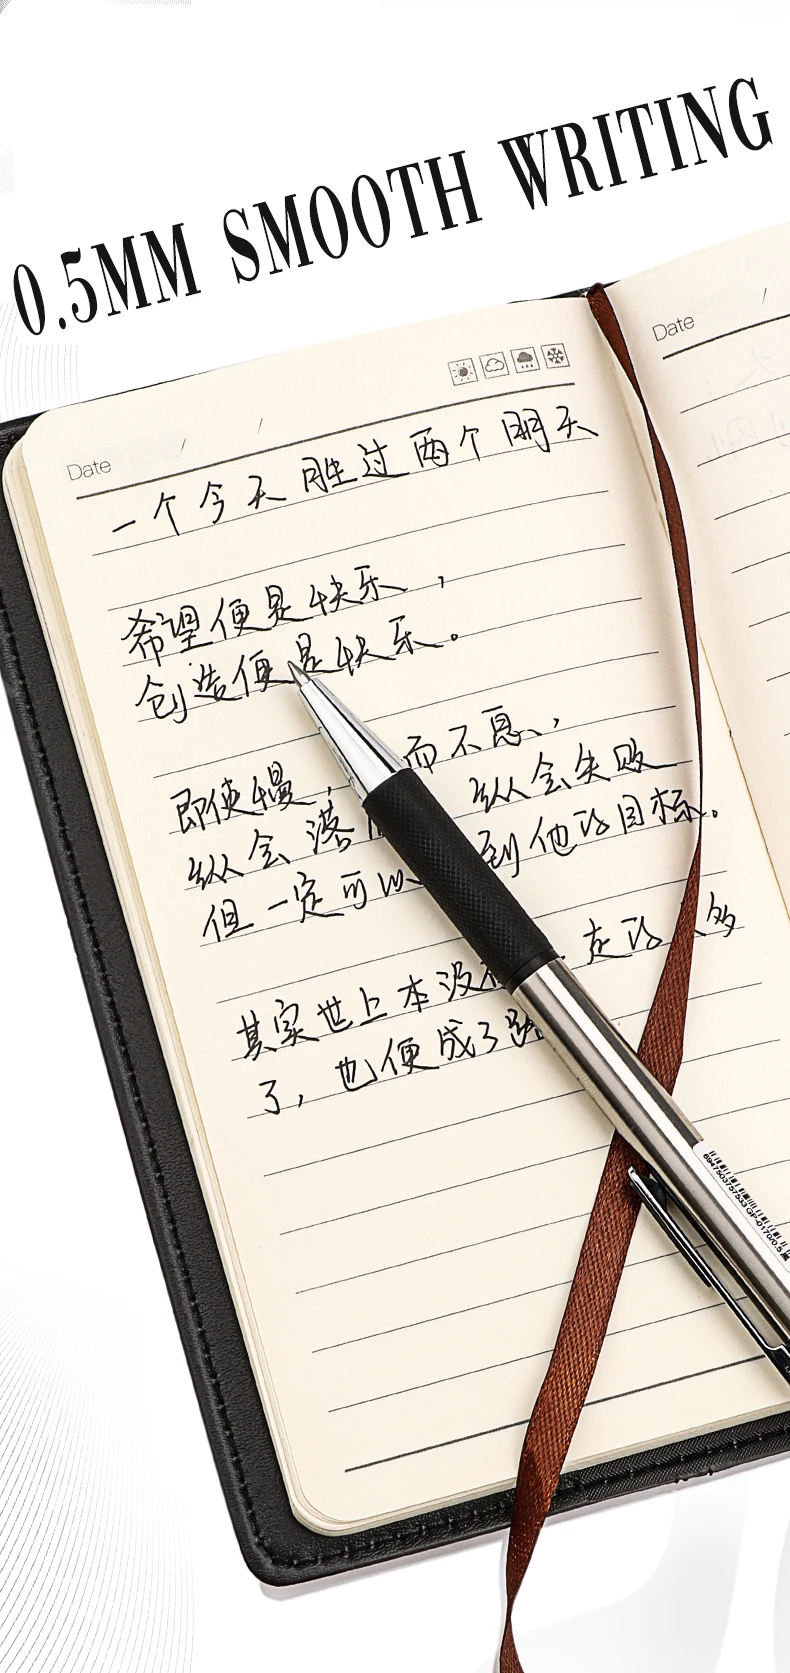 0.5MM SMOOTH WRITING
Date / /
Date /
一个今天胜过两个明天
希望便是快乐，
创造便是快乐。
即使慢， 而不息、，
纵会落 纵会失败
但一定可以 到他的目标。
其实世上本没 走的 多
了，也便成了路
6947503757533 GP-0170/0.5